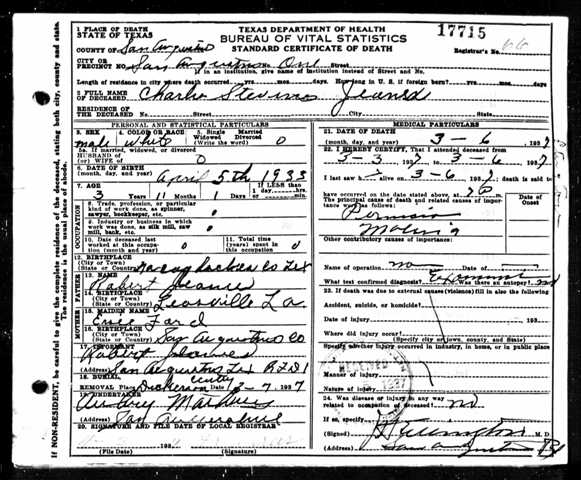 TEXAS DEPARTMENT OF HEALTH
BUREAU OF VITAL STATISTICS
STANDARD CERTIFICATE OF DEATH
17715
Registrar's No. 66
1 PLACE OF DEATH
STATE OF TEXAS
COUNTY OF San Augustine
CITY OR PRECINCT NO. San Augustine One Street
If in an institution, give name of institution instead of Street and No.
Length of residence in city where death occurred yrs mos days How long in U. S. if foreign born? yrs mos days
2 FULL NAME OF DECEASED Charlie Stevens
RESIDENCE OF THE DECEASED Street City State
PERSONAL AND STATISTICAL PARTICULARS
3. SEX male
4. COLOR OR RACE white
5. Single Married Widowed Divorced (Write the word) 0
5a. If married, widowed, or divorced
HUSBAND OF (or) WIFE OF 0
6. DATE OF BIRTH (month, day, and year) April 5th 1933
7. AGE 3 Years 11 Months 1 Days If LESS than 1 day hrs min
OCCUPATION
8. Trade, profession, or particular kind of work done, as spinner, sawyer, bookkeeper, etc. 0
9. Industry or business in which work was done, as silk mill, saw mill, bank, etc. 0
10. Date deceased last worked at this occupation 0
11. Total time (years) spent in occupation 0
12. BIRTHPLACE (City or Town) (State or Country) Nacogdoches Co Tex
FATHER
13. NAME Robert
14. BIRTHPLACE (City or Town) (State or Country) Leesville La
MOTHER
15. MAIDEN NAME Ford
16. BIRTHPLACE (City or Town) (State or Country) San Augustine Co
17. INFORMANT Robert
(Address) San Augustine Tex RFD 1
18. BURIAL, REMOVAL
Place Dickerson Date 3-7 1937
19. UNDERTAKER
(Address) San Augustine
20. SIGNATURE AND FILE DATE OF LOCAL REGISTRAR
193
(File Date) (Signature)
MEDICAL PARTICULARS
21. DATE OF DEATH (month, day, and year) 3 - 6, 1937
22. I HEREBY CERTIFY, That I attended deceased from
3-3 1937 to 3-6 1937
I last saw h alive on 3-6 1937; death is said to
have occurred on the date stated above, at
The principal cause of death and related causes of importance were as follows: Date of Onset
Other contributory causes of importance:
Name of operation no Date of
What test confirmed diagnosis? Was there an autopsy? no
23. If death was due to external causes (violence) fill in also the following
Accident, suicide, or homicide?
Date of injury 193
Where did injury occur?
(Specify city or town, county, and State)
Specify whether injury occurred in industry, in home, or in public place
Manner of injury
Nature of injury
24. Was disease or injury in any way related to occupation of deceased? no
If so, specify
(Signed) M. D.
(Address) San Augustine
IF NON-RESIDENT, be careful to give the complete residence of the deceased, stating both city, county and state.
The residence is the usual place of abode.